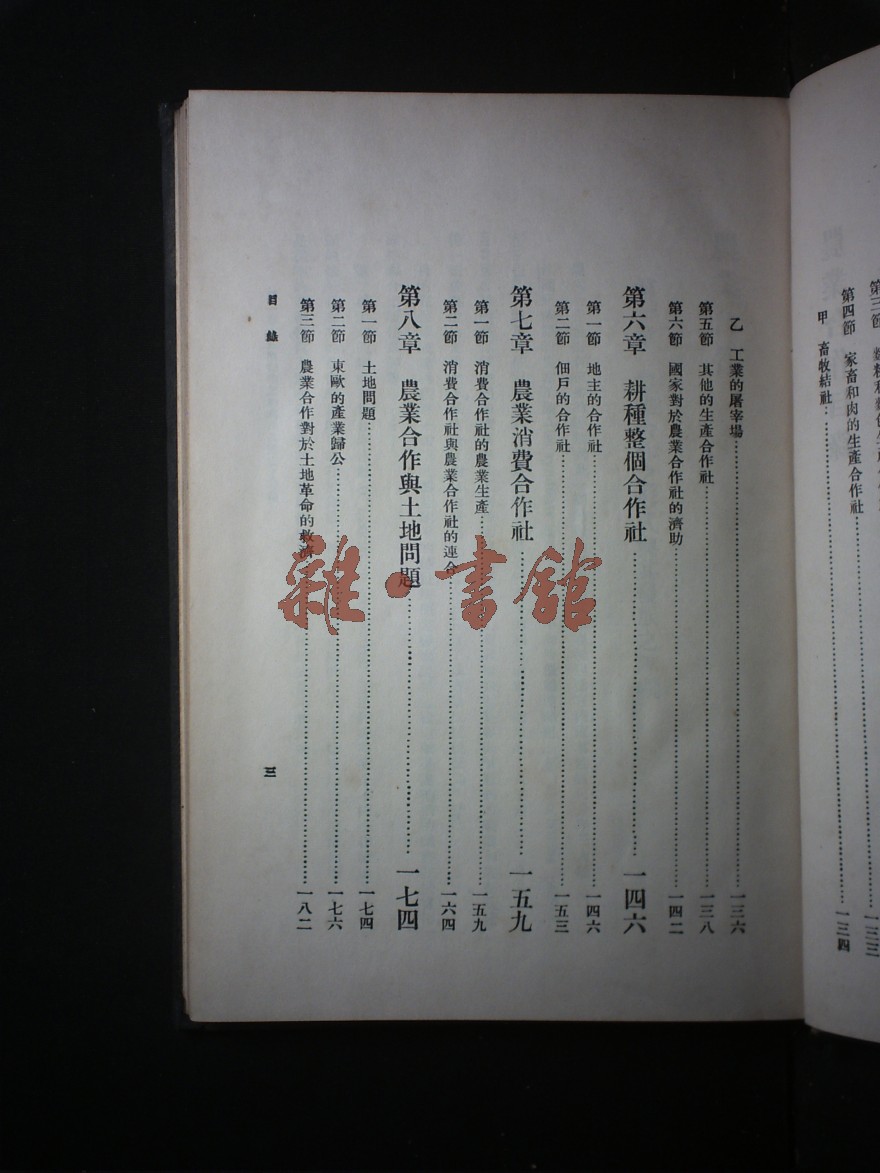 第四節 家畜和肉的生產合作社……一三四
甲 畜牧結社
乙 工業的屠宰場……一三六
第五節 其他的生產合作社……一三八
第六節 國家對於農業合作社的濟助……一四二
第六章 耕種整個合作社……一四六
第一節 地主的合作社……一四六
第二節 佃戶的合作社……一五三
第七章 農業消費合作社……一五九
第一節 消費合作社的農業生產……一五九
第二節 消費合作社與農業合作社的連合……一六四
第八章 農業合作與土地問題……一七四
第一節 土地問題……一七四
第二節 東歐的產業歸公……一七六
第三節 農業合作對於土地革命的救濟……一八二
目錄
三
雜·書館